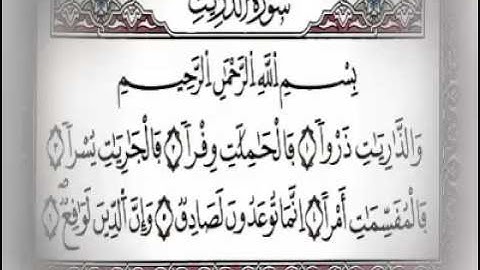 سُورَةُ الذَّارِيَاتِ
بِسْمِ اللَّهِ الرَّحْمَٰنِ الرَّحِيمِ
وَالذَّارِيَاتِ ذَرْوًا ۝ فَالْحَامِلَاتِ وِقْرًا ۝ فَالْجَارِيَاتِ يُسْرًا ۝
فَالْمُقَسِّمَاتِ أَمْرًا ۝ إِنَّمَا تُوعَدُونَ لَصَادِقٌ ۝ وَإِنَّ الدِّينَ لَوَاقِعٌ ۝